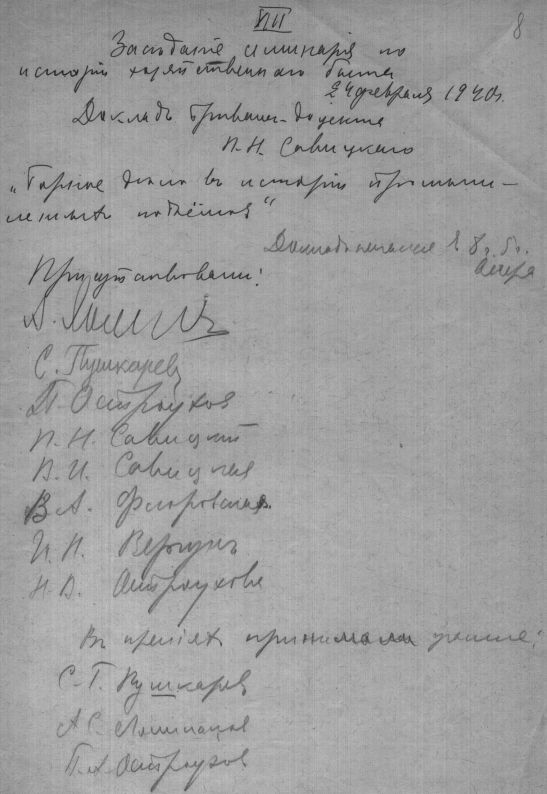 VII
8
Заседание семинария по
истории хозяйственного быта
24 февраля 1940 г.
Доклад приват-доцента
П. Н. Савицкого
„Горное дело в истории промыш-
ленных подъёмов“
8 ч.
вечера
Присутствовали:
С. Пушкарев
П. Остроухов
П. Н. Савицкий
В. И. Савицкая
В. А. Флоровская
И. И. Вергун
Н. В. Остроухова
В прениях принимали участие:
С. Г. Пушкарев
А. С.
П. А. Остроухов